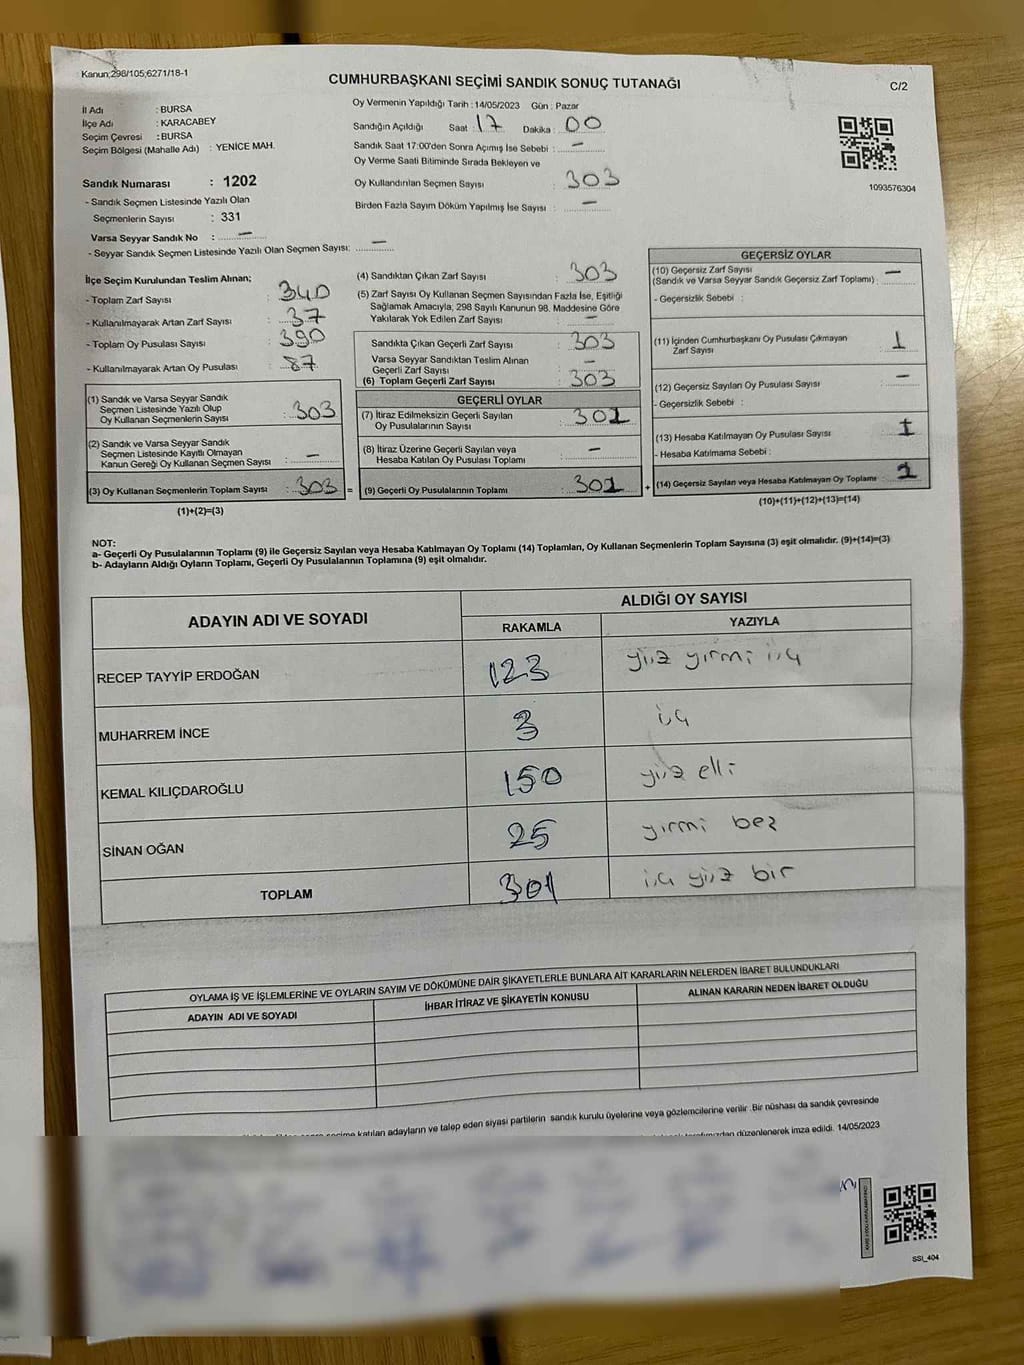 Kanun;298/105;6271/18-1
CUMHURBAŞKANI SEÇİMİ SANDIK SONUÇ TUTANAĞI
C/2
İl Adı : BURSA
İlçe Adı : KARACABEY
Seçim Çevresi : BURSA
Seçim Bölgesi (Mahalle Adı) : YENİCE MAH.
Sandık Numarası : 1202
- Sandık Seçmen Listesinde Yazılı Olan
Seçmenlerin Sayısı : 331
Varsa Seyyar Sandık No : -
- Seyyar Sandık Seçmen Listesinde Yazılı Olan Seçmen Sayısı: -
Oy Vermenin Yapıldığı Tarih : 14/05/2023 Gün : Pazar
Sandığın Açıldığı Saat : 17 Dakika : 00
Sandık Saat 17:00'den Sonra Açımış İse Sebebi : -
Oy Verme Saati Bitiminde Sırada Bekleyen ve
Oy Kullandırılan Seçmen Sayısı : 303
Birden Fazla Sayım Döküm Yapılmış İse Sayısı : -
1093576304
İlçe Seçim Kurulundan Teslim Alınan;
- Toplam Zarf Sayısı : 340
- Kullanılmayarak Artan Zarf Sayısı : 37
- Toplam Oy Pusulası Sayısı : 390
- Kullanılmayarak Artan Oy Pusulası : 87
(1) Sandık ve Varsa Seyyar Sandık
Seçmen Listesinde Yazılı Olup
Oy Kullanan Seçmenlerin Sayısı : 303
(2) Sandık ve Varsa Seyyar Sandık
Seçmen Listesinde Kayıtlı Olmayan
Kanun Gereği Oy Kullanan Seçmen Sayısı : -
(3) Oy Kullanan Seçmenlerin Toplam Sayısı : 303 =
(1)+(2)=(3)
(4) Sandıktan Çıkan Zarf Sayısı : 303
(5) Zarf Sayısı Oy Kullanan Seçmen Sayısından Fazla İse, Eşitliği
Sağlamak Amacıyla, 298 Sayılı Kanunun 98. Maddesine Göre
Yakılarak Yok Edilen Zarf Sayısı : -
Sandıkta Çıkan Geçerli Zarf Sayısı : 303
Varsa Seyyar Sandıktan Teslim Alınan
Geçerli Zarf Sayısı : -
(6) Toplam Geçerli Zarf Sayısı : 303
GEÇERLİ OYLAR
(7) İtiraz Edilmeksizin Geçerli Sayılan
Oy Pusulalarının Sayısı : 301
(8) İtiraz Üzerine Geçerli Sayılan veya
Hesaba Katılan Oy Pusulası Toplamı : -
(9) Geçerli Oy Pusulalarının Toplamı : 301 +
GEÇERSİZ OYLAR
(10) Geçersiz Zarf Sayısı
(Sandık ve Varsa Seyyar Sandık Geçersiz Zarf Toplamı) : -
- Geçersizlik Sebebi :
(11) İçinden Cumhurbaşkanı Oy Pusulası Çıkmayan
Zarf Sayısı : 1
(12) Geçersiz Sayılan Oy Pusulası Sayısı : -
- Geçersizlik Sebebi :
(13) Hesaba Katılmayan Oy Pusulası Sayısı : 1
- Hesaba Katılmama Sebebi :
(14) Geçersiz Sayılan veya Hesaba Katılmayan Oy Toplamı : 2
(10)+(11)+(12)+(13)=(14)
NOT:
a- Geçerli Oy Pusulalarının Toplamı (9) ile Geçersiz Sayılan veya Hesaba Katılmayan Oy Toplamı (14) Toplamları, Oy Kullanan Seçmenlerin Toplam Sayısına (3) eşit olmalıdır. (9)+(14)=(3)
b- Adayların Aldığı Oyların Toplamı, Geçerli Oy Pusulalarının Toplamına (9) eşit olmalıdır.
ADAYIN ADI VE SOYADI
ALDIĞI OY SAYISI
RAKAMLA YAZIYLA
RECEP TAYYİP ERDOĞAN 123 yüz yirmi üç
MUHARREM İNCE 3 üç
KEMAL KILIÇDAROĞLU 150 yüz elli
SİNAN OĞAN 25 yirmi beş
TOPLAM 301 üç yüz bir
OYLAMA İŞ VE İŞLEMLERİNE VE OYLARIN SAYIM VE DÖKÜMÜNE DAİR ŞİKAYETLERLE BUNLARA AİT KARARLARIN NELERDEN İBARET BULUNDUKLARI
ADAYIN ADI VE SOYADI
İHBAR İTİRAZ VE ŞİKAYETİN KONUSU
ALINAN KARARIN NEDEN İBARET OLDUĞU
seçime katılan adayların ve talep eden siyasi partilerin sandık kurulu üyelerine veya gözlemcilerine verilir. Bir nüshası da sandık çevresinde
tarafımızdan düzenlenerek imza edildi. 14/05/2023
SSI_404